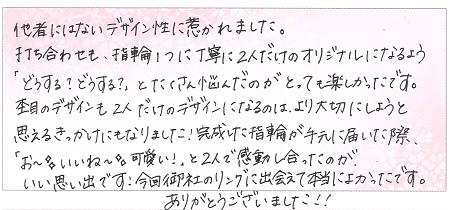 他者にはないデザイン性に惹かれました。
打ち合わせも、指輪1つに丁寧に2人だけのオリジナルになるよう
「どうする?どうする?」とたくさん悩んだのがとっても楽しかったです。
杢目のデザインも2人だけのデザインになるのは、より大切にしようと
思えるきっかけにもなりました!完成した指輪が手元に届いた際、
「お〜!いいね〜!可愛い!」と2人で感動し合ったのが、
いい思い出です!今回御社のリングに出会えて本当によかったです。
ありがとうございました!!